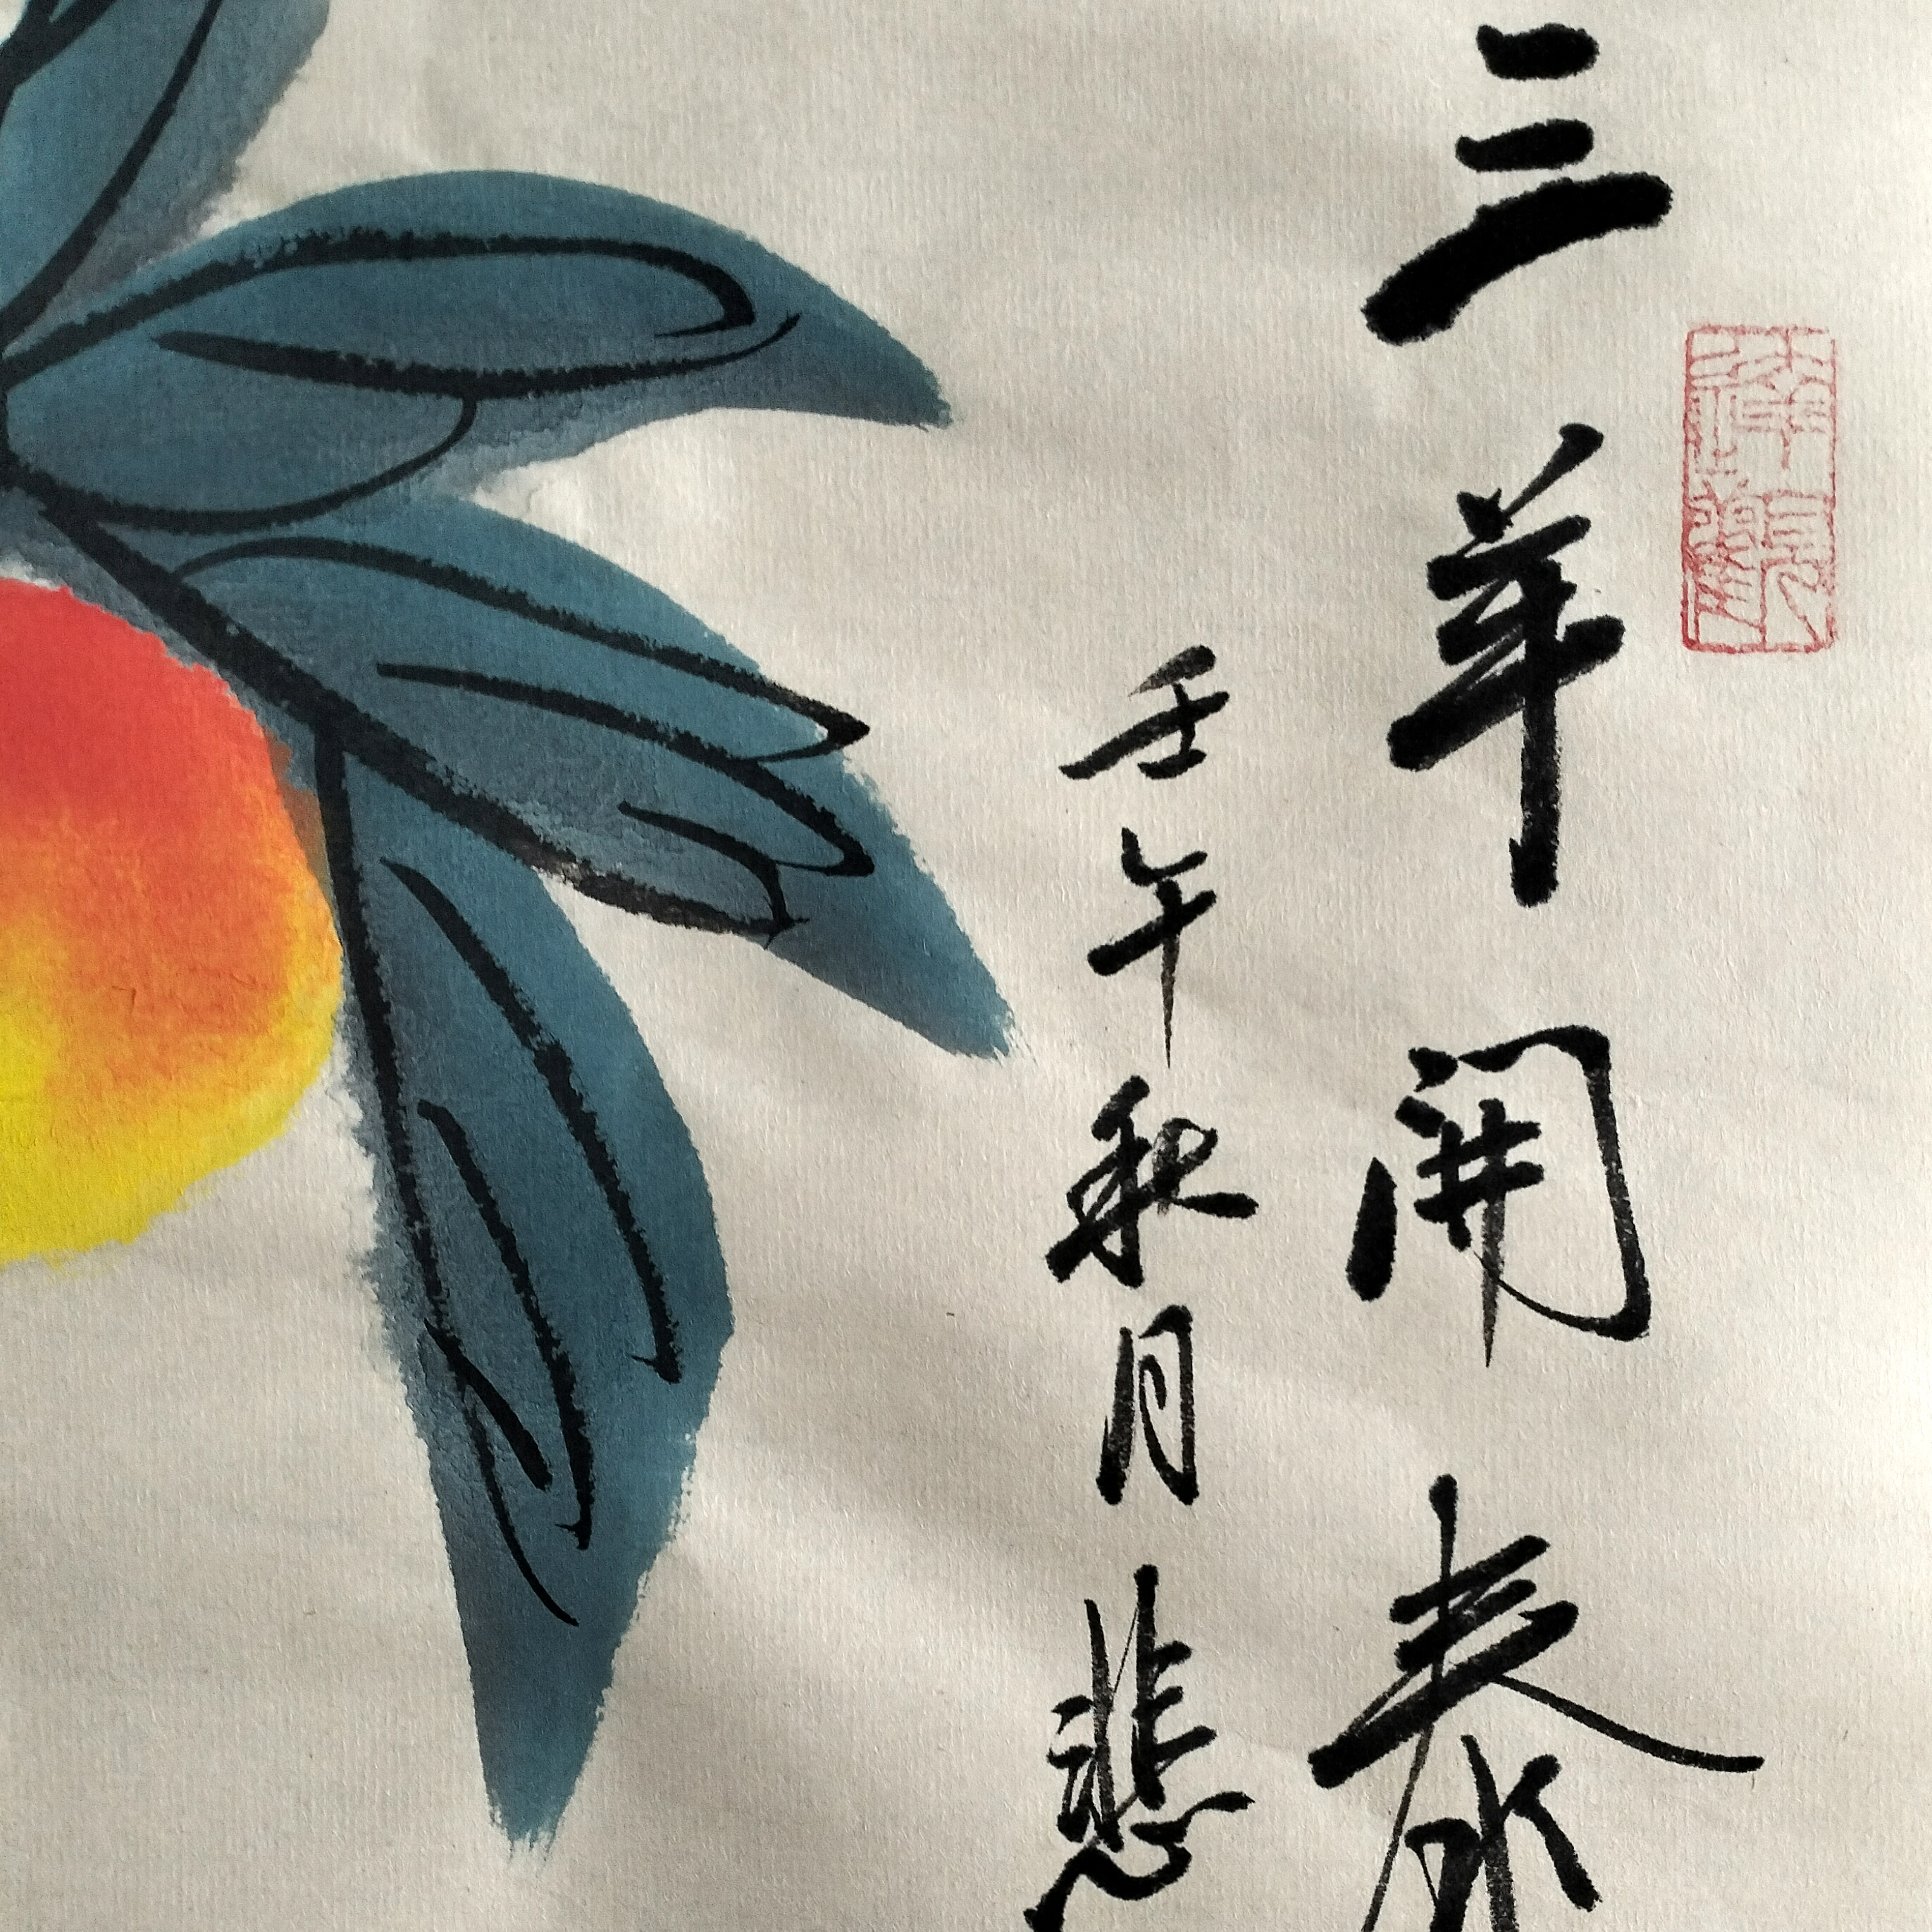 三羊開泰
壬午秋月悲